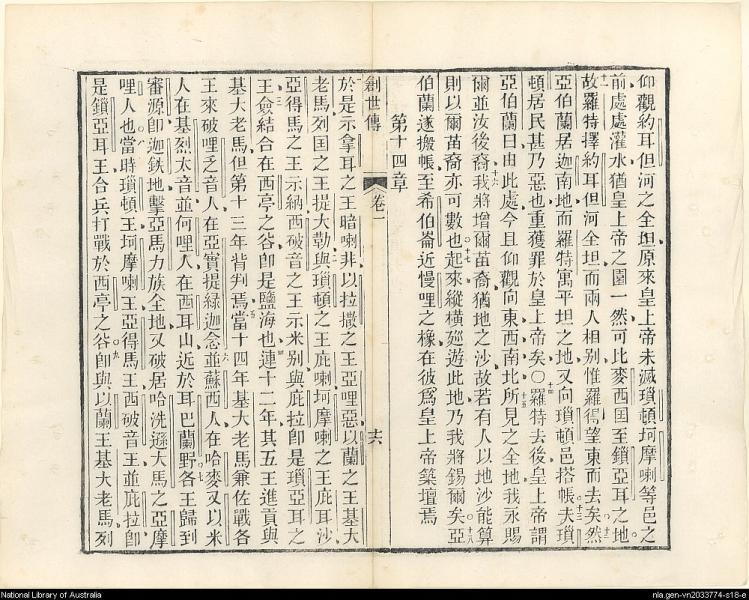 仰觀約耳但河之全坦原來皇上帝未滅瑣頓坷摩喇等邑之
前處處灌水猶皇上帝之園一然可比麥西囯至鎖亞耳之地
十一
故羅特擇約耳但河全坦而兩人相別惟羅得望東而去矣然
十二
亞伯蘭居迦南地而羅特寓平坦之地又向瑣頓邑搭帳夫瑣
十三
頓居民甚乃惡也重獲罪於皇上帝矣〇羅特去後皇上帝謂
十四
亞伯蘭曰由此處今且仰觀向東西南北所見之全地我永賜
十五
爾並汝後裔我將增爾苗裔猶地之沙故若有人以地沙能算
十六
則以爾苗裔亦可數也起來縱橫遊此地乃我將錫爾矣亞
十七
十八
伯蘭遂搬帳至希伯崙近慢哩之橡在彼爲皇上帝築壇焉
第十四章
創世傳
卷一
十六
於是示拿耳之王暗喇非以拉撒之王亞哩惡以蘭之王基大
老馬列囯之王提大勒與瑣頓之王庇喇坷摩喇之王庇耳沙
二
亞得馬之王示納西破音之王示米別與庇拉卽是瑣亞耳之
王僉結合在西亭之谷卽是鹽海也連十二年其五王進貢與
三
四
基大老馬但第十三年背判焉當十四年基大老馬兼佐戰各
五
王來破哩乏音人在亞實提綠迦念並蘇西人在哈麥又以米
六
人在基烈太音並何哩人在西耳山近於耳巴蘭野各王歸到
七
審源卽迦鉄地擊亞馬力族全地又破居哈洗遜大馬之亞摩
哩人也當時瑣頓王坷摩喇王亞得馬王西破音王並庇拉卽
八
是鎖亞耳王合兵打戰於西亭之谷卽與以蘭王基大老馬列
九